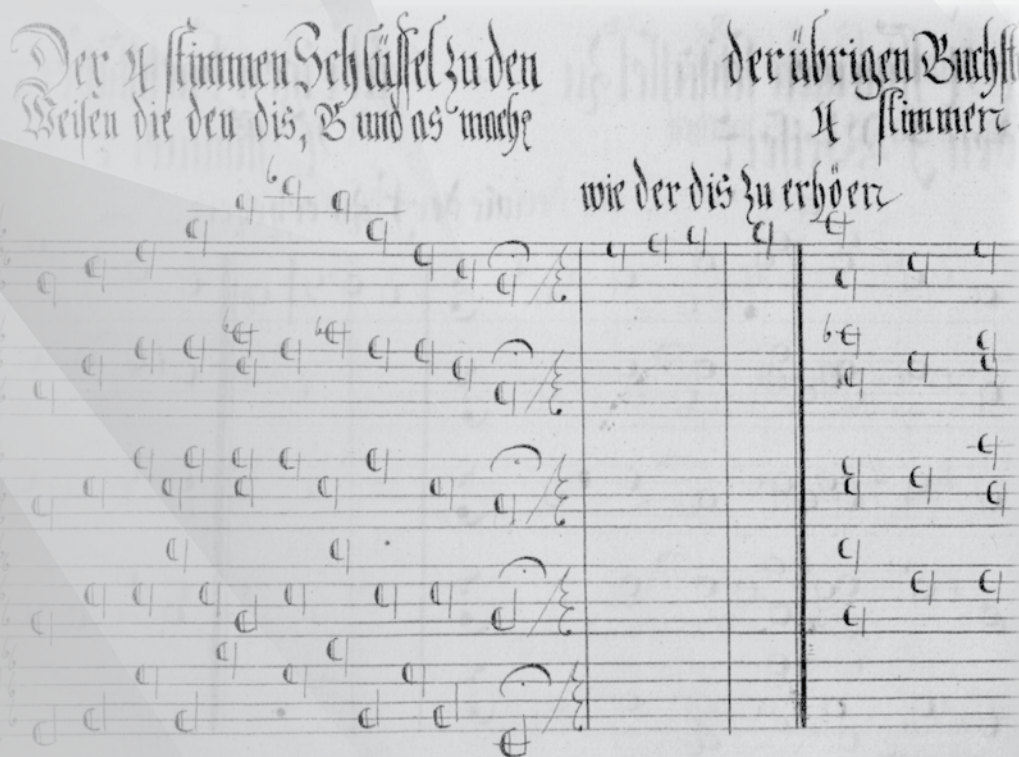 Der 4 stimmen Schlüssel zu den
Weisen die den dis, B und as mach
der übrigen Buchst
4 stimmen
wie der dis zu erhöen